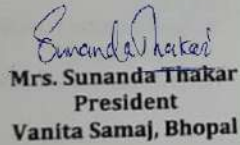 Sunanda Thakar
Mrs. Sunanda Thakar
President
Vanita Samaj, Bhopal